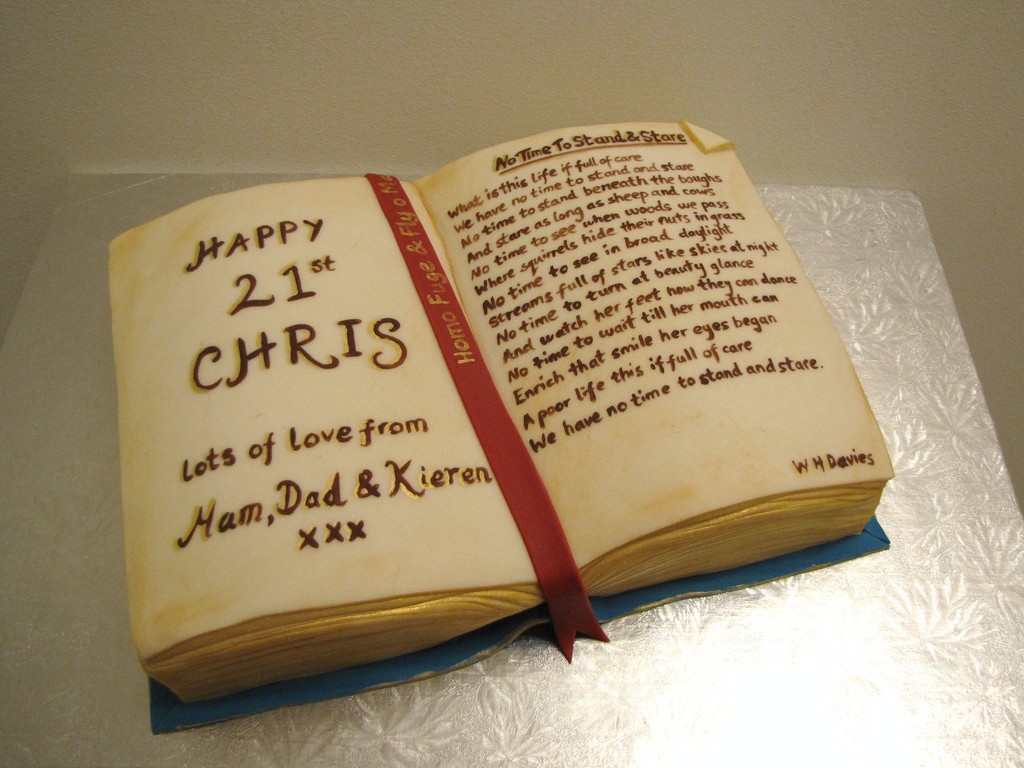 HAPPY
21st
CHRIS
lots of love from
Mam, Dad & Kieren
xxx
Homo Fuge & Fly o Ma
No Time To Stand & Stare
What is this life if full of care
We have no time to stand and stare
No time to stand beneath the boughs
And stare as long as sheep and cows
No time to see when woods we pass
Where squirrels hide their nuts in grass
No time to see in broad daylight
Streams full of stars like skies at night
No time to turn at beauty glance
And watch her feet how they can dance
No time to wait till her mouth can
Enrich that smile her eyes began
A poor life this if full of care
We have no time to stand and stare.
W H Davies